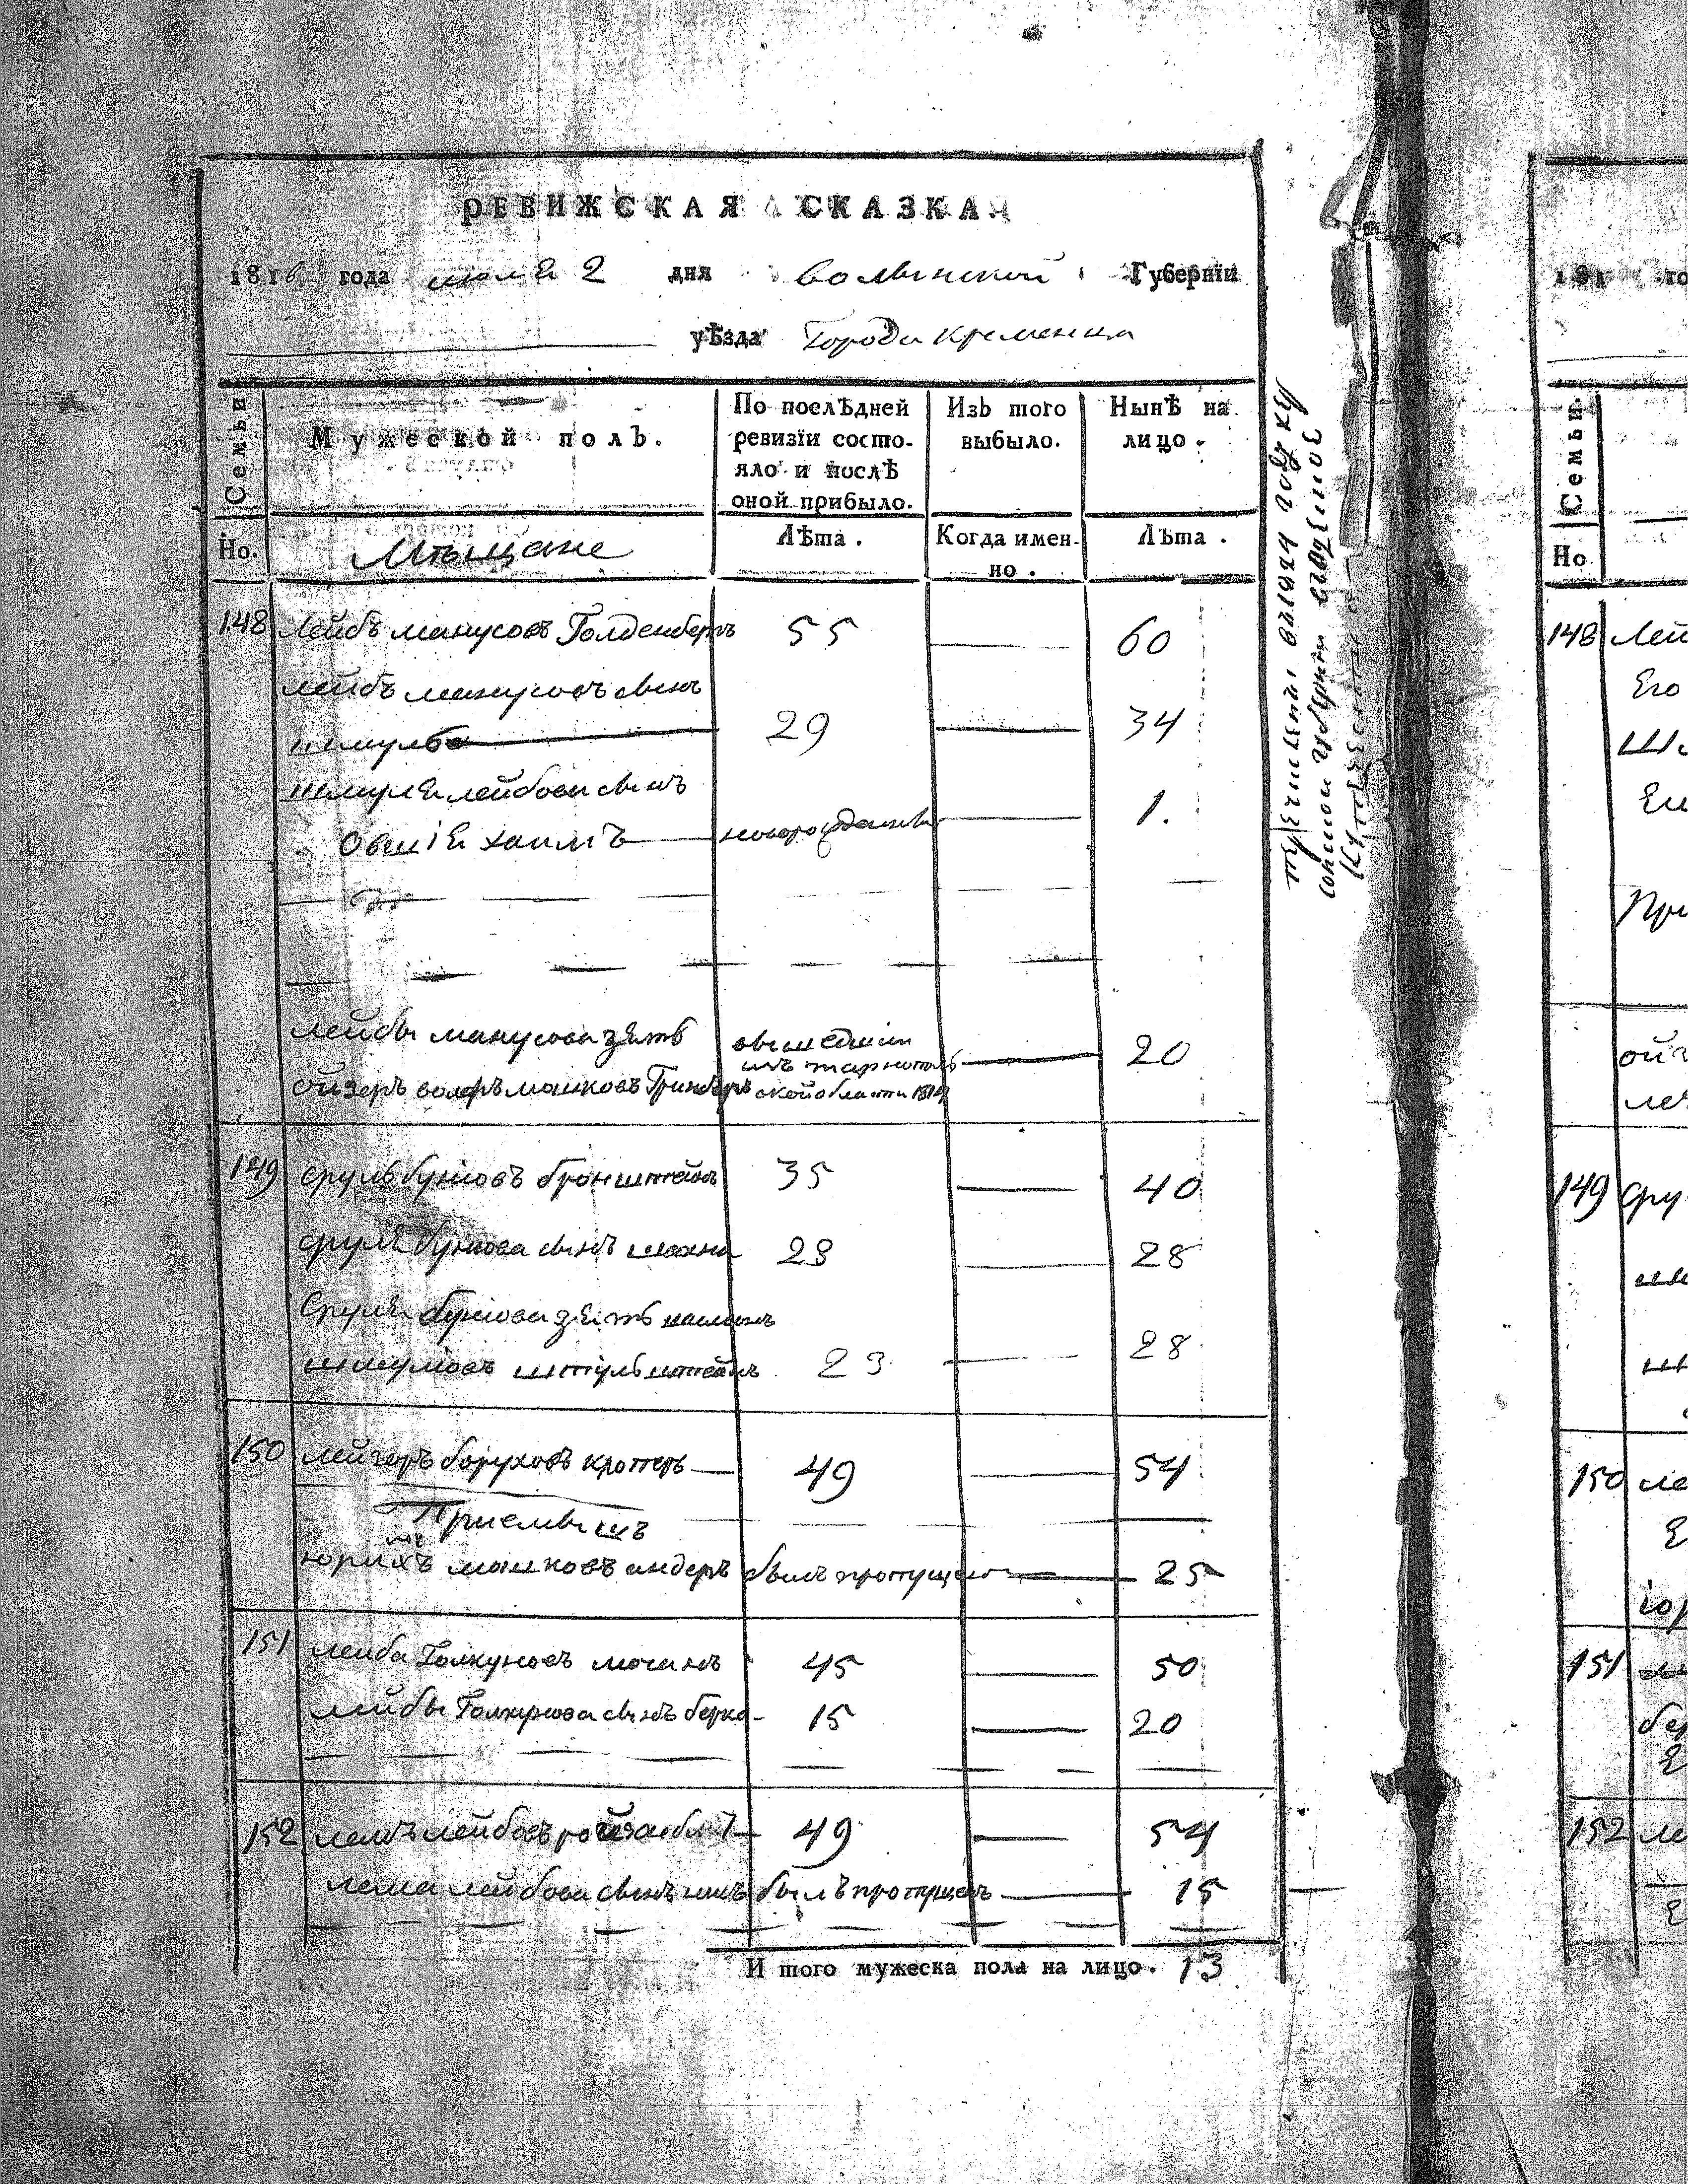 РЕВИЖСКАЯ СКАЗКА
1816 года июля 2 дня волынской Губернїи
уѣзда Города Кременца
Семьи
Мужеской полъ.
По послѣдней ревизїи состо-
яло и послѣ
оной прибыло.
Изъ того
выбыло.
Нынѣ на
лицо.
Но.
Мѣщане
Лѣта.
Когда имен-
но.
Лѣта.
148 Лейбъ манусовъ Голденберъ 55 — 60
лейбъ манусовъ сынъ
шмуль 29 — 34
шмуля лейбова сынъ
овшія хаимъ новорожденны 1.
лейбы манусова зять
ойзеръ волфъ мошковъ Гринберъ
вышедшіи
изъ тарнополь
ской области 1814
20
149 сруль бунiовъ бронштейнъ 35 — 40
сруля бунiова сынъ шахна 23 28
Сруля бунiова зять
шмулiовъ 23 — 28
150 лейзоръ боруховъ кротеръ — 49 — 54
Приемышъ
мошковъ андеръ былъ пропущенъ — 25
151 лейба Голкуновъ мочанъ 45 — 50
лейбы Голкунова сынъ берко 15 — 20
152 лемъ лейбовъ 49 — 54
лема лейбова сынъ былъ пропущенъ — 15
И того мужеска пола на лицо. 13
Семьи.
Но
148 Лей
Его
Ши
При
ойз
149 Сру
150 ле
151
бер
152 ле